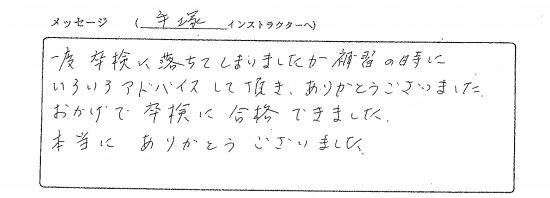 メッセージ (手塚インストラクターへ)
一度卒検に落ちてしまいましたが補習の時に
いろいろアドバイスして頂き、ありがとうございました。
おかげで卒検に合格できました。
本当に ありがとう ございました。